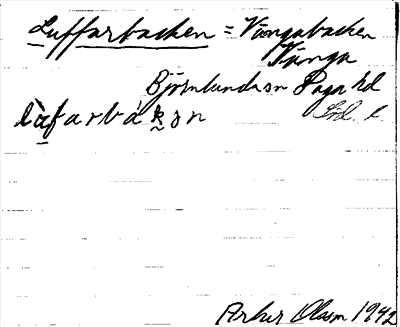 Luffarbacken = Vångabacken
Vånga
Björnlunda sn Daga hd
Söd. l.
làfarbákən
Artur Olsson 1942